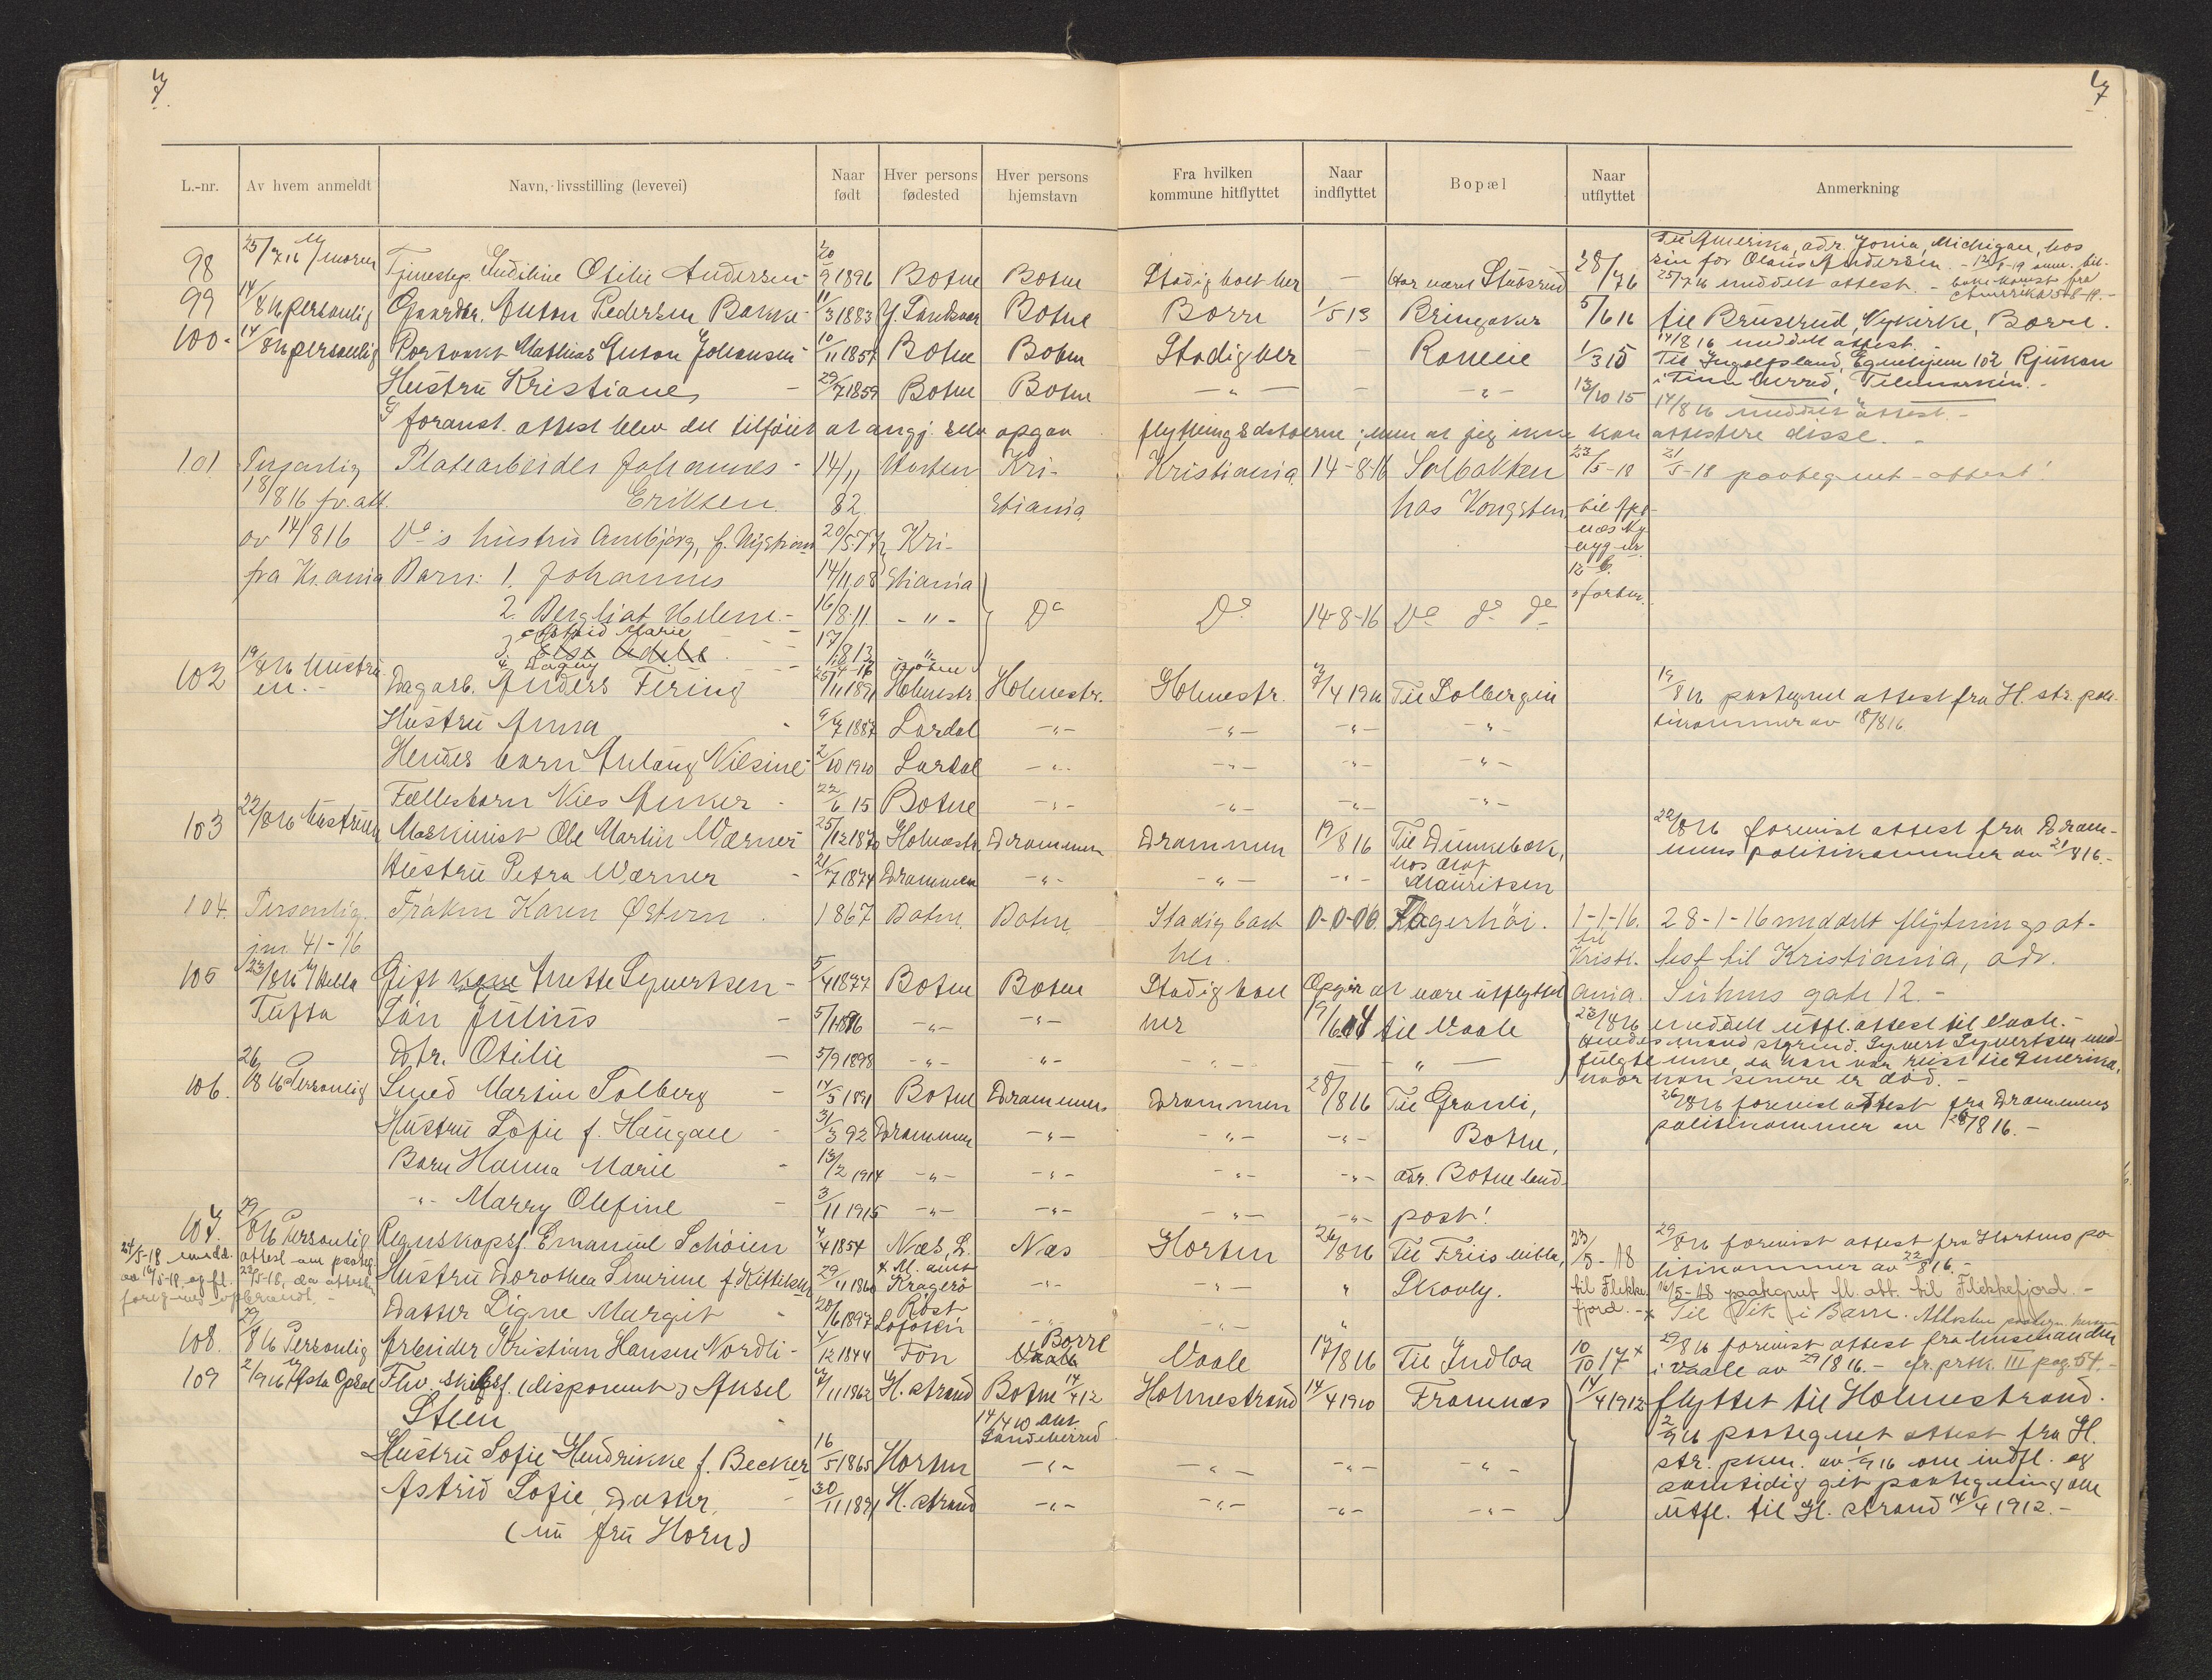 7
7
L.-nr.
Av hvem anmeldt
Navn, livsstilling (levevei)
Naar født
Hver persons fødested
Hver persons hjemstavn
Fra hvilken kommune hitflyttet
Naar indflyttet
Bopæl
Naar utflyttet
Anmerkning
Til Amerika, adr. Jonia, Michigan, hos
98 25/7 16 moren Tjenestep. Otilie Andersen 20/9 1896 Botne Botne Stadig boet her - 28/7 16 sin far Olaus Andersen.
25/7 16 meddelt attest.
99 14/8 16 personlig Gaardbr. Anton Pedersen Bakke 11/3 1883 Botne Borre 1/5 13 Bringaker 5/6 16 til Bruserud, Nykirke, Borre.
14/8 16 meddelt attest.
100 14/8 16 personlig Mathias Anton Johansen 10/11 1857 Botne Botne Stadig her - 1/3 15 Til Ingolfsland, Egnehjem 102 Rjukan
Hustru Kristiane 29/7 1859 Botne Botne -"- - -"- 13/10 15 i Tinn herred, Telemarken.
14/8 16 meddelt attest.
I foranst. attest blev det tilføiet at angj. selv opgav flytningsdatoerne; men at jeg ikke kan attestere disse.
101 Personlig Platearbeider Johannes 14/11 Horten Kri- Kristiania 14-8-16 Solbakken 23/5-18 21/5-18 paategnet attest!
18/8 16 fr. att. Eriksen. 82. stiania hos Kongsten
av 14/8 16 Do's hustru f. Nystrøm 20/5- Kri-
fra Kr.ania Barn: 1. Johannes 14/11 08 stiania
2. Bergliot Helene 16/8-11 -"- Do Do 14-8-16 Do do do
3. Marie 17/1 813 "
4. Dagny Botne
102 19/8 16 Hustruen. Dagarb. Anders Fering 25/11 1891 Holmestr. Holmestr. Holmestr. 7/4 1916 Til Solbergen 19/8 16 paategnet attest fra H. str. poli-
Hustru Anna 9/7 1887 Lardal -"- -"- -"- -"- tikammer av 18/8 16.
Hendes barn Nilsine 2/10 1910 Lardal -"- -"- -"- -"-
Fællesbarn Nils Anker 22/6 15 Botne -"- -"- -"- -"-
103 22/8 16 Hustruen Maskinist Ole Martin Wærner 25/12 1870 Holmestr. Drammen Drammen 19/8 16 Til Dunkebæk, 22/8 16 forevist attest fra Dram-
Hustru Petra Wærner 21/7 1874 Drammen -"- -"- -"- hos Olaf Mauritsen mens politikammer av 21/8 16.
104. Personlig. Frøken Karen Østern 1867 Botne. Botne. Stadig boet 0-0-00. Fagerhöi. 1-1-16. 28-1-16 meddelt flytningsat-
jnr. 41-16 her. til Kristi- test til Kristiania, adr.
105 23/8 16 Hella Gift kone Anette Syvertsen 5/4 1877 Botne Botne Stadig boet Opgir at være utflyttet ania. Suhms gate 12.
Tufta Sön Julius 5/1 1896 -"- -"- her 19/6 04 til Vaale 23/8 16 meddelt utfl. attest til Vaale.
Dtr. Otilie 5/9 1898 -"- -"- -"- -"- Hendes mand Syvert Syvertsen med-
fulgte inne, da han var reist til Amerika,
hvor han senere er död.
106. 26/8 16 Personlig Smed Martin Solberg 14/5 1891 Botne Drammen Drammen 28/8 16 Til Granli, 26/8 16 forevist attest fra Drammens
Hustru Sofie f. Haugan 31/3 92 Drammen -"- -"- -"- Botne, politikammer av 26/8 16.
Barn Hanna Marie 13/2 1914 -"- -"- -"- -"- adr. Botne land-
-"- Marry Olefine 3/11 1915 -"- -"- -"- -"- post!
107. 29/8 16 Personlig Regnskapsf. Emanuel Schöien 4/4 1854 Næs, L. & M. amt Næs Horten 26/8 16 Til Friis villa, 23/5-18 29/8 16 forevist attest fra Hortens po-
24/5-18 medd. attest om paateg. Hustru Dorothea f. Kittilsen 29/11 1860 Kragerö -"- -"- " Skovly. til Flekke- litikammer av 22/8 16.
Datter Signe Margit 20/6 1897 Röst Lofoten -"- -"- " fjord. 16/5-18 paategnet fl. att. til Flekkefjord.
x Til Vik i Borre.
108. 29/8 16 Personlig Arbeider Kristian Hansen Nordli 4/12 1844 Fon Borre Vaale Vaale 17/8 16 Til Indlaa 10/10 17 x 29/8 16 forevist attest fra lensmanden
i Vaale av 29/8 16. cfr. prtk. III pag. 54.
109 2/9 16 Opsal Fhv. skibsf. (disponent) Aksel 7/11 1862 H.strand Botne 14/4 12 Holmestrand 14/4 1910 Framnæs 14/4 1912 flyttet til Holmestrand.
Steen 14/4 10 ant. Sandeherred 2/9 16 paategnet attest fra H.
Hustru Sofie Hendrikke f. Becker 16/5 1865 Horten -"- -"- -"- -"- str. pkm. av 1/9 16 om indfl. og
Astrid Sofie, datter, 30/11 1891 H.strand -"- -"- -"- -"- samtidig git paategning om
(nu fru Horn) utfl. til H. strand 14/4 1912.